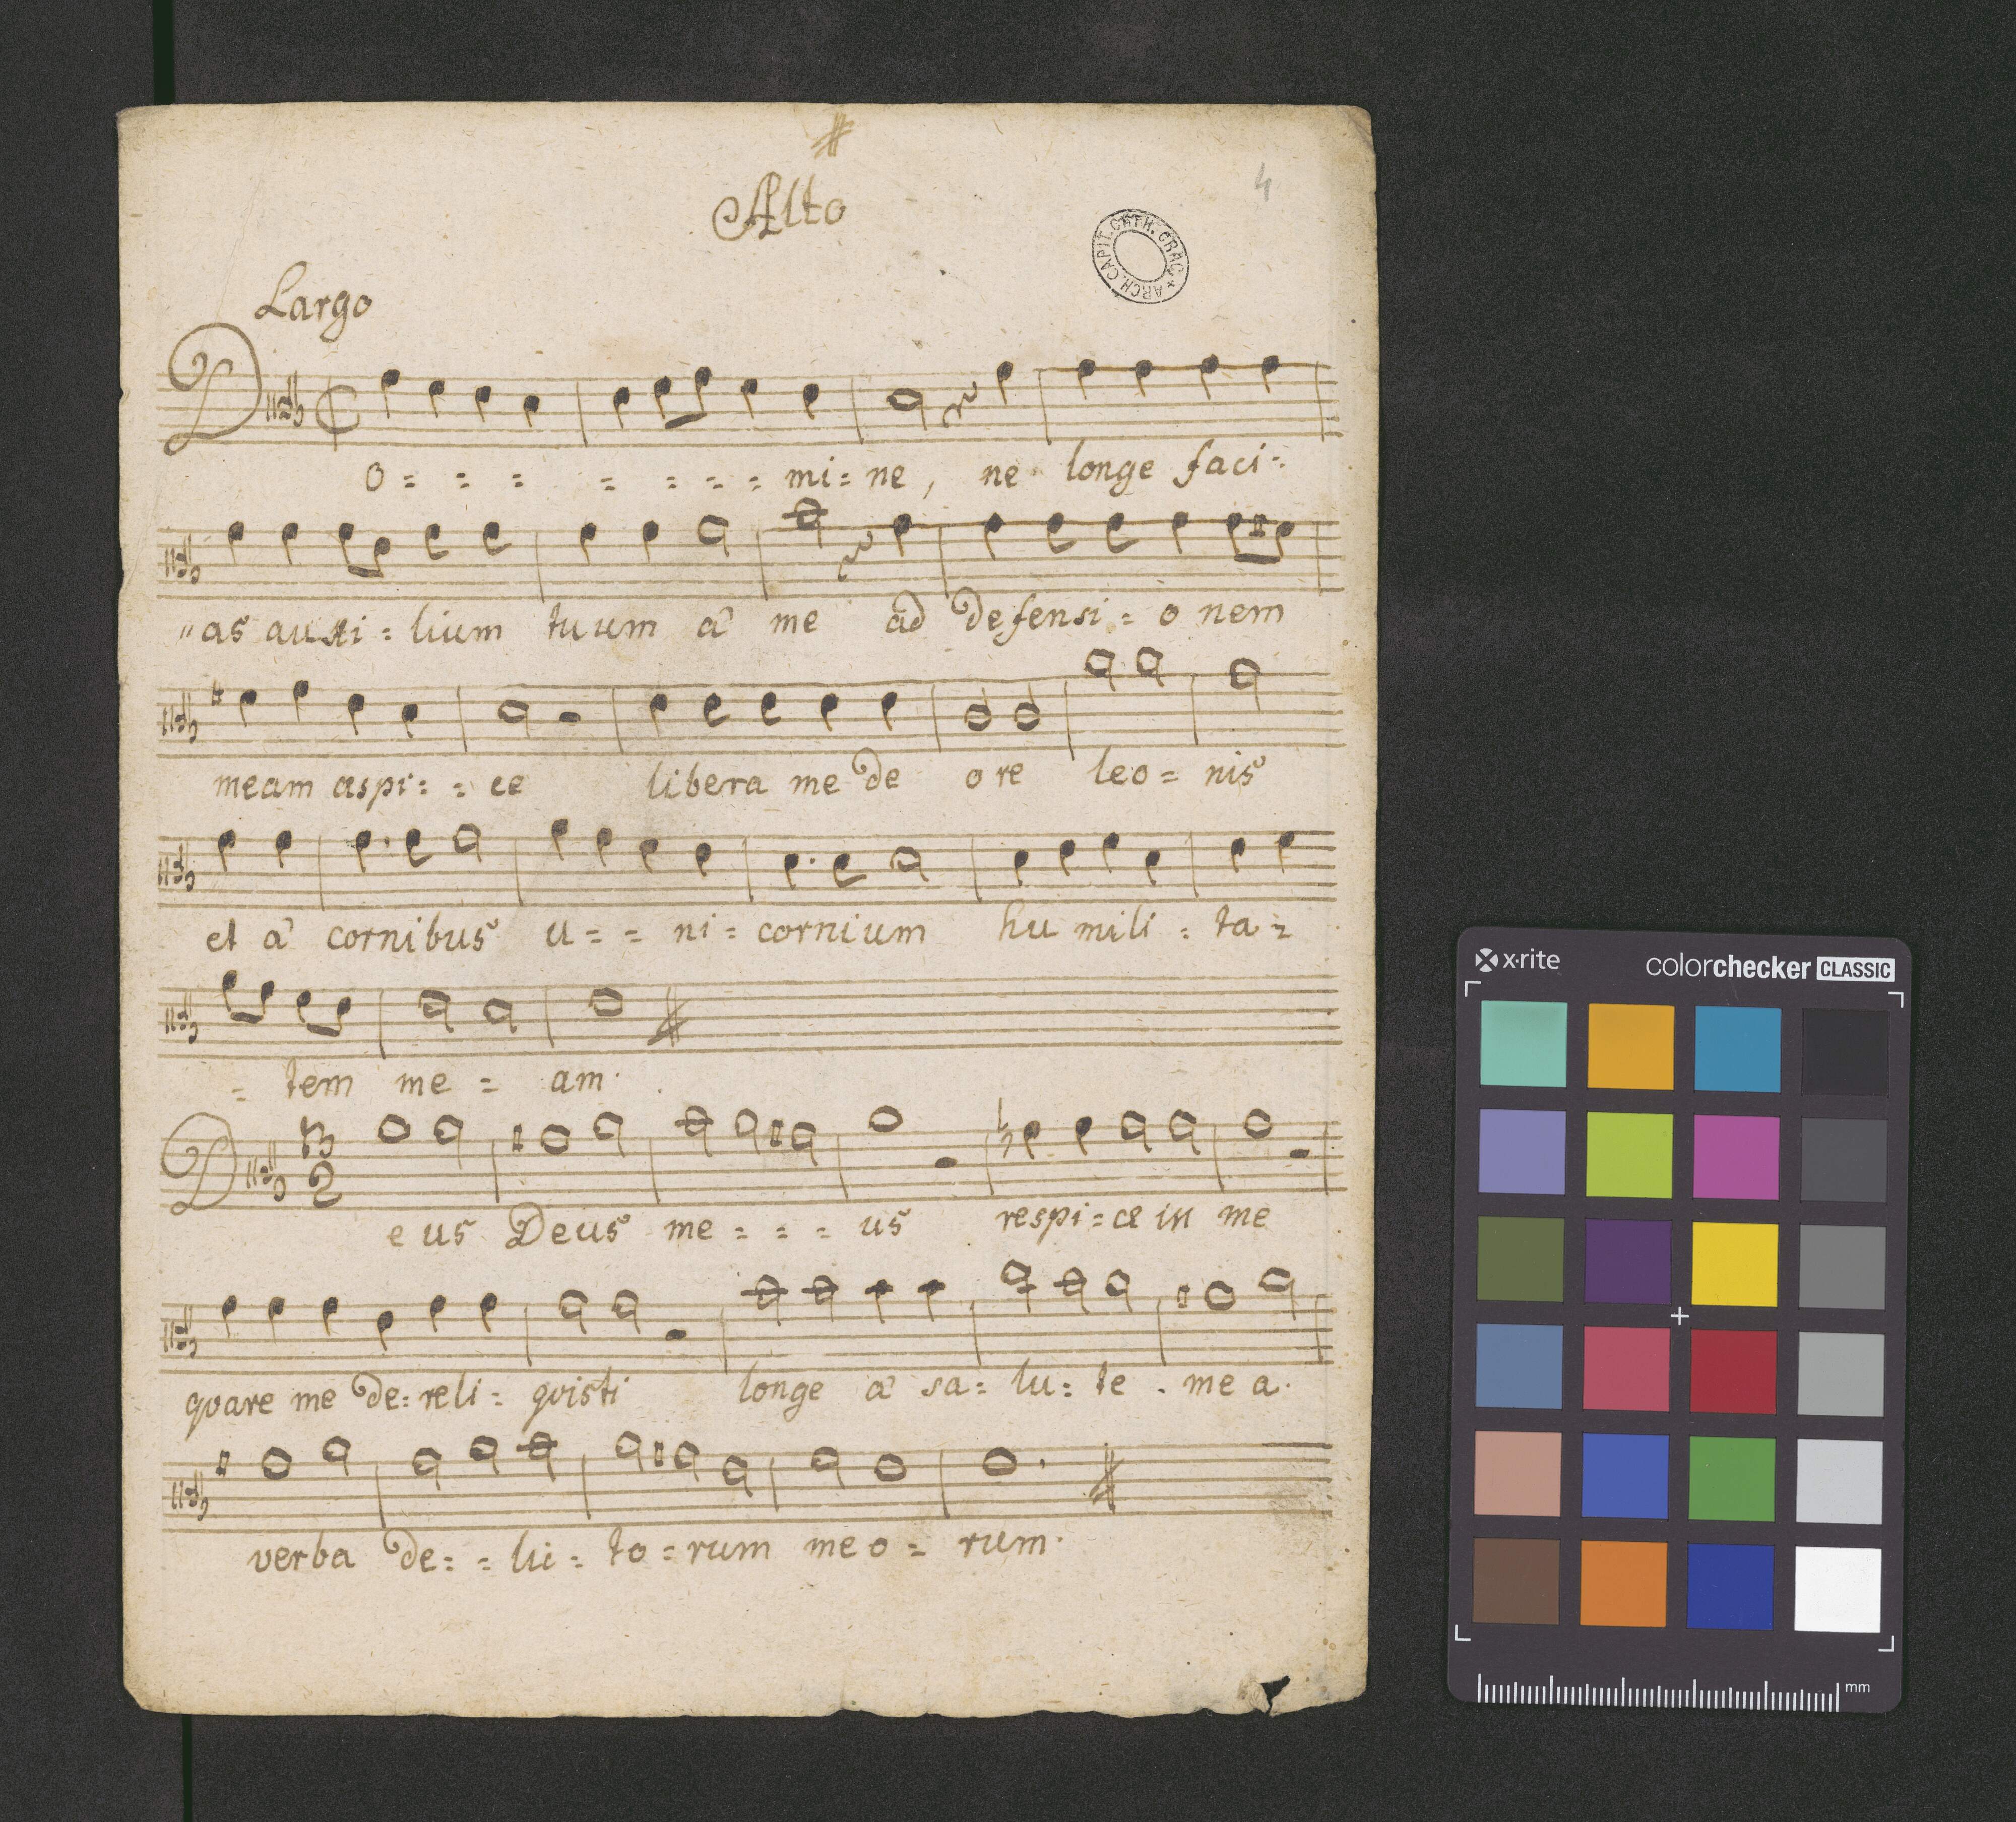 Alto
4
ARCH. CAPIT. CATH. CRAC.
Largo
DO = = = = = = = mi = ne, ne longe faci =
as auxi = lium tuum à me ad defensi = o nem
meam aspi = = ce libera me de ore leo = nis
et à cornibus u = = ni = cornium humili = ta =
= tem me = am.
3
2
Deus Deus me = = = us respi = ce in me
quare me de = reli = quisti longe à sa = lu = te . mea.
verba de = = lic = to = rum meo = rum.
x·rite
colorchecker CLASSIC
mm